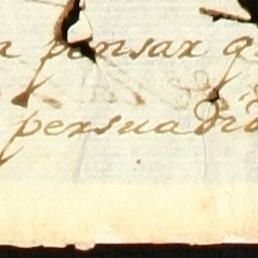 pensar
persuadi